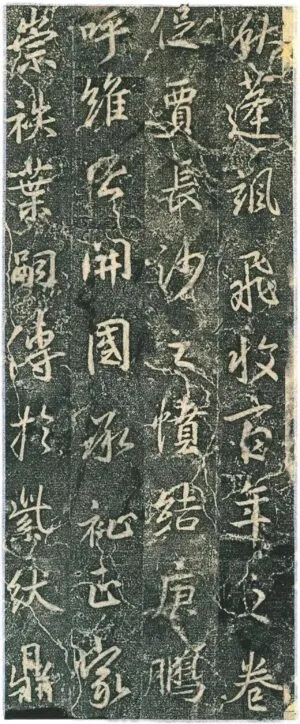 秋蓬颯飛收百年之卷
賈長沙之憤結庚鵬
呼維公開國承祉家
崇袟葉嗣傳於紫紱鼎